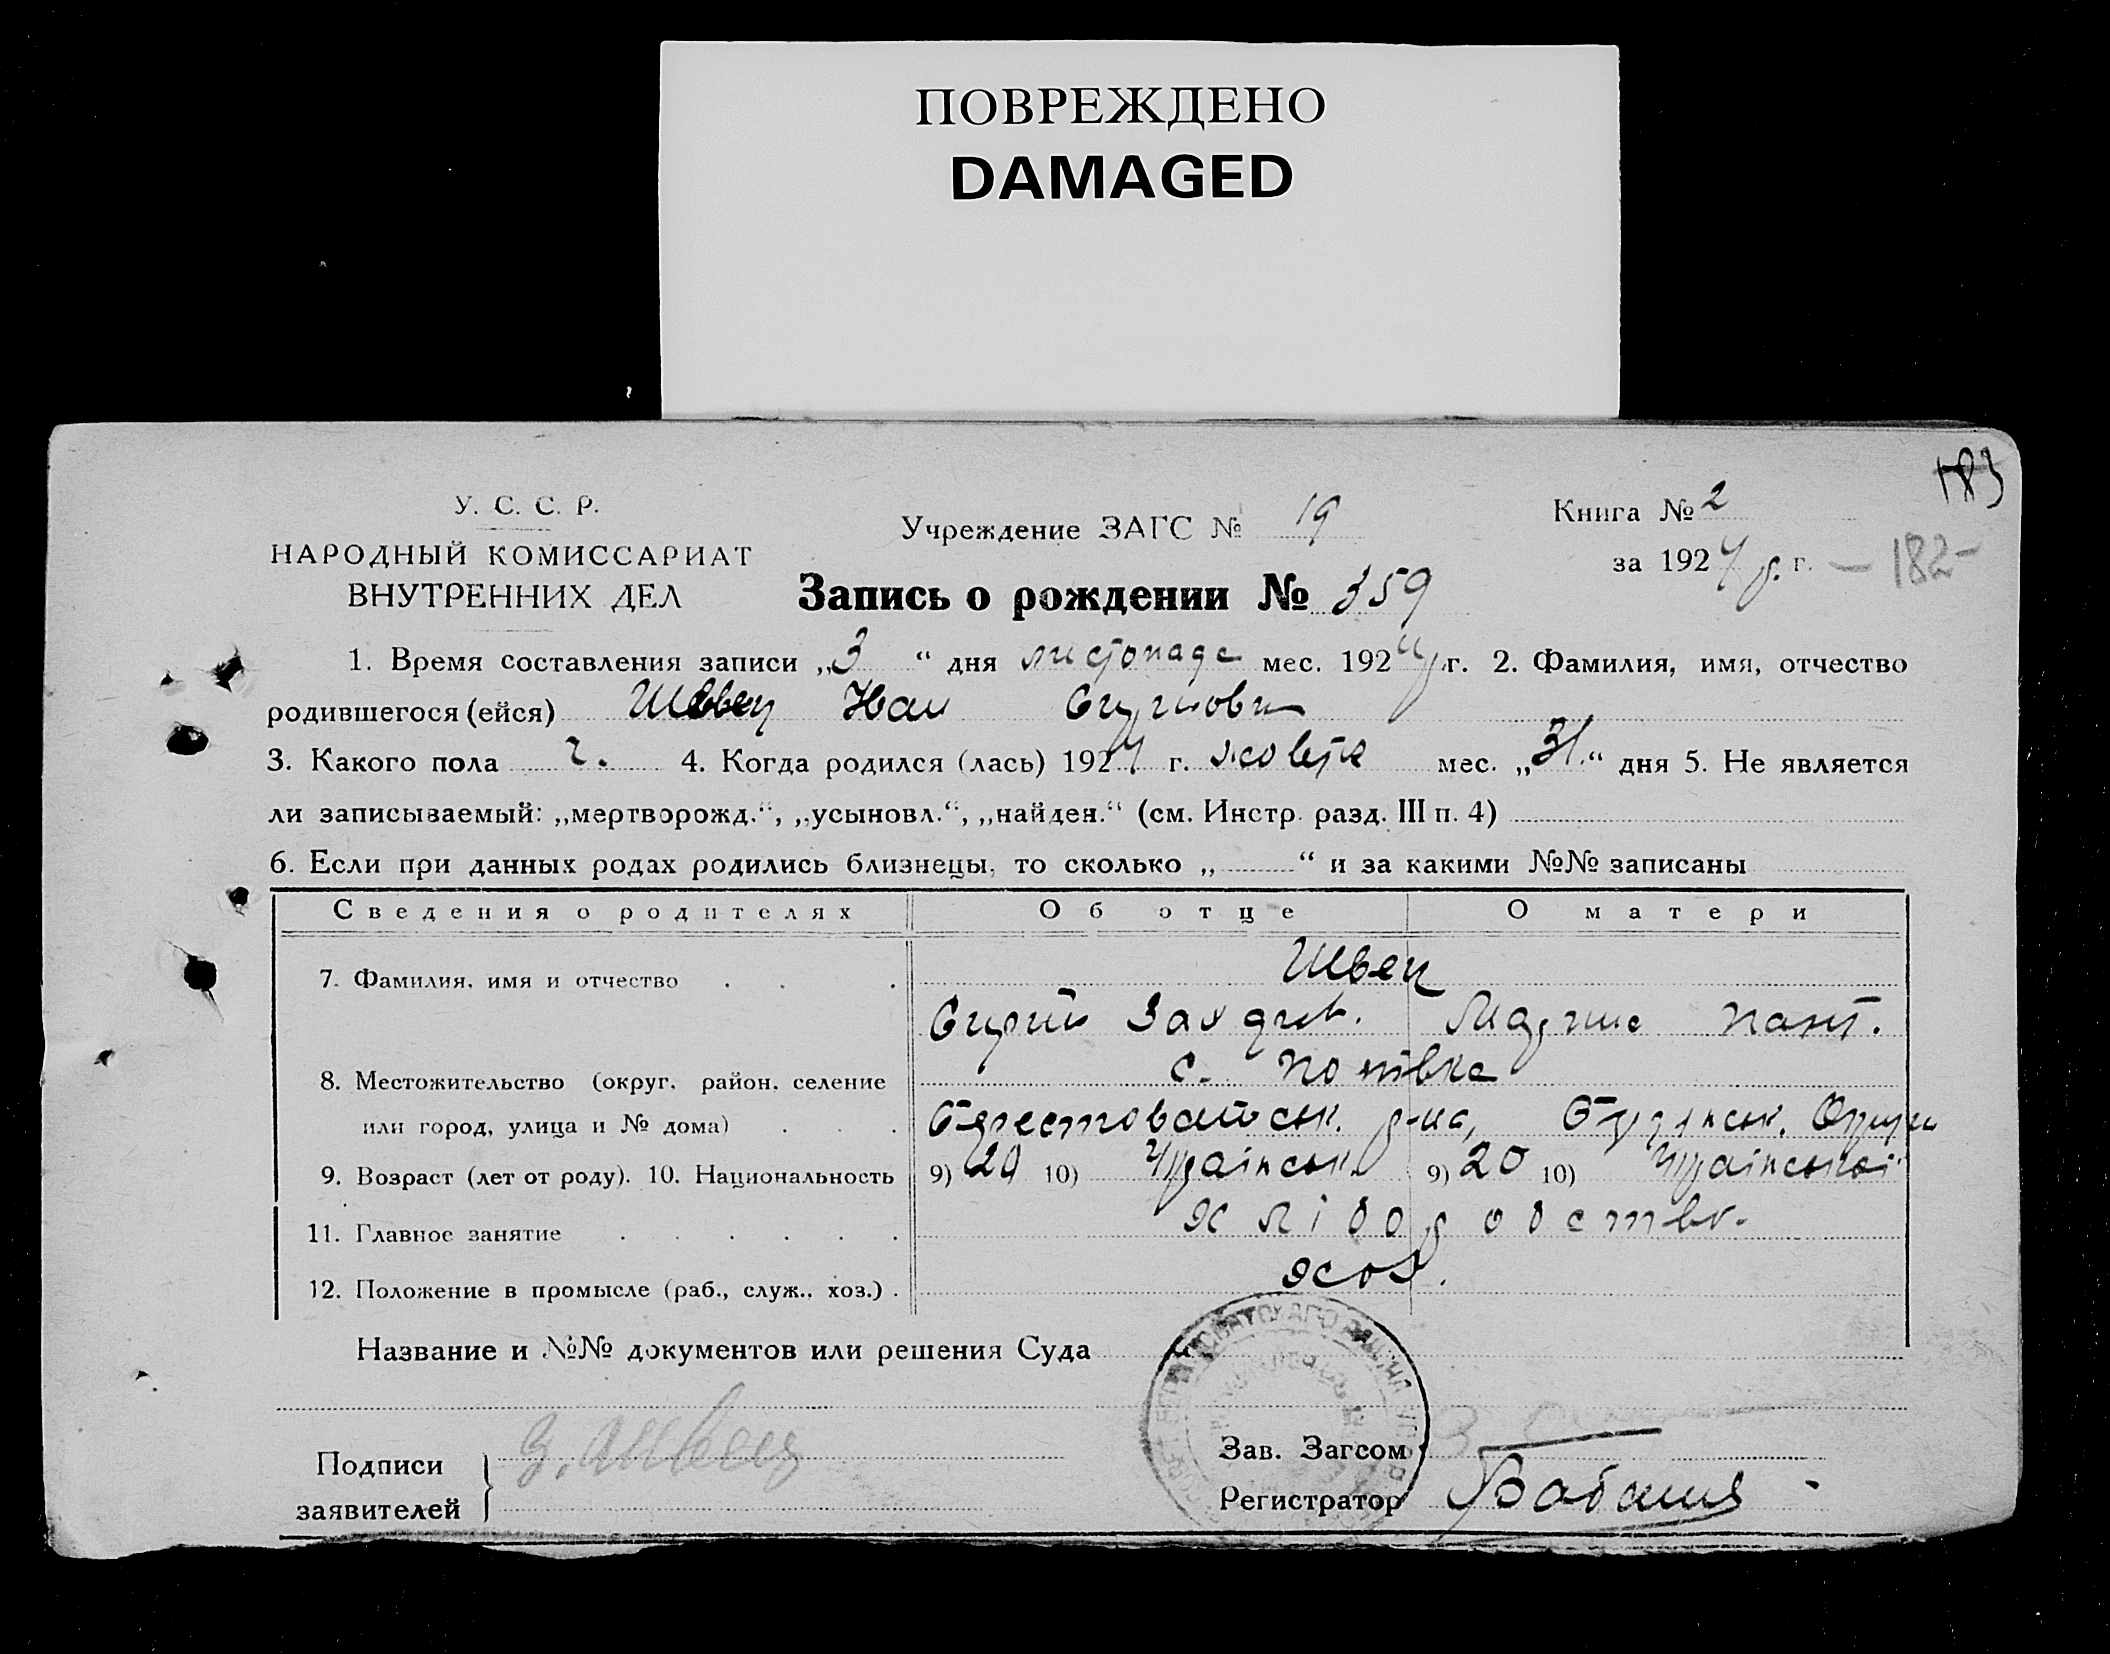 ПОВРЕЖДЕНО
DAMAGED
183
У. С. С. Р.
НАРОДНЫЙ КОМИССАРИАТ
ВНУТРЕННИХ ДЕЛ
Учреждение ЗАГС № 19
Книга № 2
за 1924 р. г. — 182 -
Запись о рождении № 359
1. Время составления записи „3“ дня листопада мес. 1924 г. 2. Фамилия, имя, отчество
родившегося (ейся) Швец Иван
3. Какого пола ч. 4. Когда родился (лась) 1924 г. жовтня мес. „31.“ дня 5. Не является
ли записываемый: „мертворожд.“, „усыновл.“, „найден.“ (см. Инстр. разд. III п. 4)
6. Если при данных родах родились близнецы, то сколько „ “ и за какими №№ записаны
Сведения о родителях Об отце О матери
7. Фамилия, имя и отчество Швец
8. Местожительство (округ, район, селение с.
или город, улица и № дома) Берестоватськ. р-на,
9. Возраст (лет от роду). 10. Национальность 9) 20 10) Українськ. 9) 20 10) Української
11. Главное занятие Хліборобство.
12. Положение в промысле (раб., служ., хоз.)
Название и №№ документов или решения Суда
Подписи заявителей З. Швець
Зав. Загсом
Регистратор